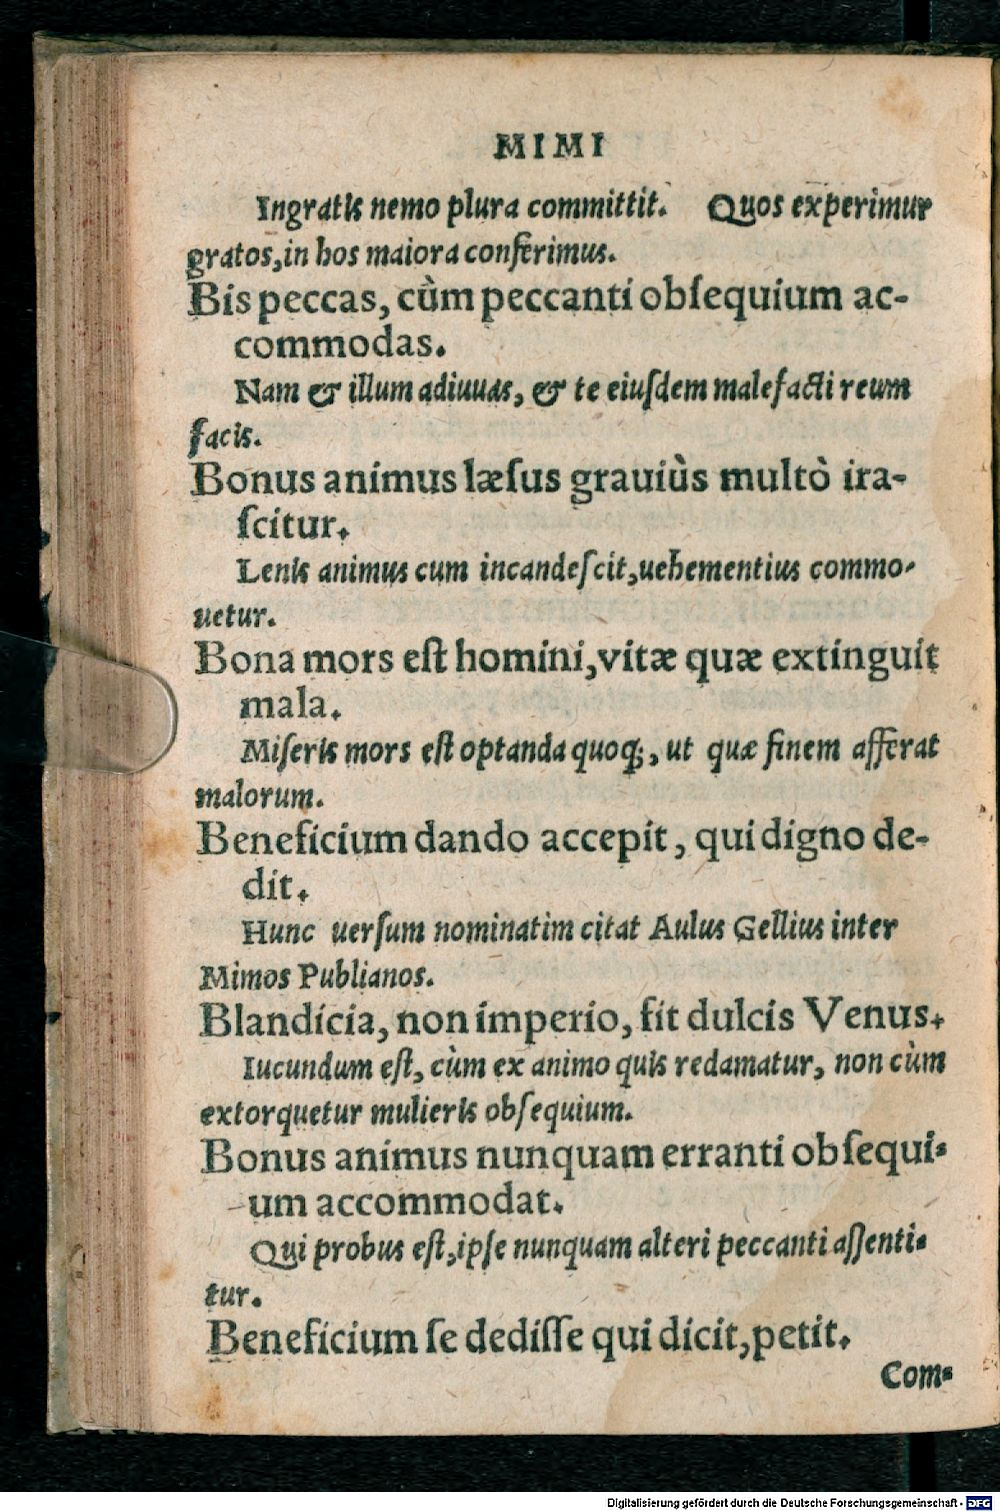 MIMI
Ingratis nemo plura committit. Quos experimur
gratos, in hos maiora conferimus.
Bis peccas, cùm peccanti obſequium ac-
commodas.
Nam & illum adiuuas, & te eiuſdem malefacti reum
facis.
Bonus animus læſus grauiùs multò ira-
ſcitur.
Lenis animus cum incandeſcit, uehementius commo-
uetur.
Bona mors eſt homini, vitæ quæ extinguit
mala.
Miſeris mors eſt optanda quoq;, ut quæ finem afferat
malorum.
Beneficium dando accepit, qui digno de-
dit.
Hunc uerſum nominatim citat Aulus Gellius inter
Mimos Publianos.
Blandicia, non imperio, fit dulcis Venus.
Iucundum eſt, cùm ex animo quis redamatur, non cùm
extorquetur mulieris obſequium.
Bonus animus nunquam erranti obſequi-
um accommodat.
Qui probus eſt, ipſe nunquam alteri peccanti aſſenti-
tur.
Beneficium ſe dediſſe qui dicit, petit.
Com-
Digitalisierung gefördert durch die Deutsche Forschungsgemeinschaft - DFG